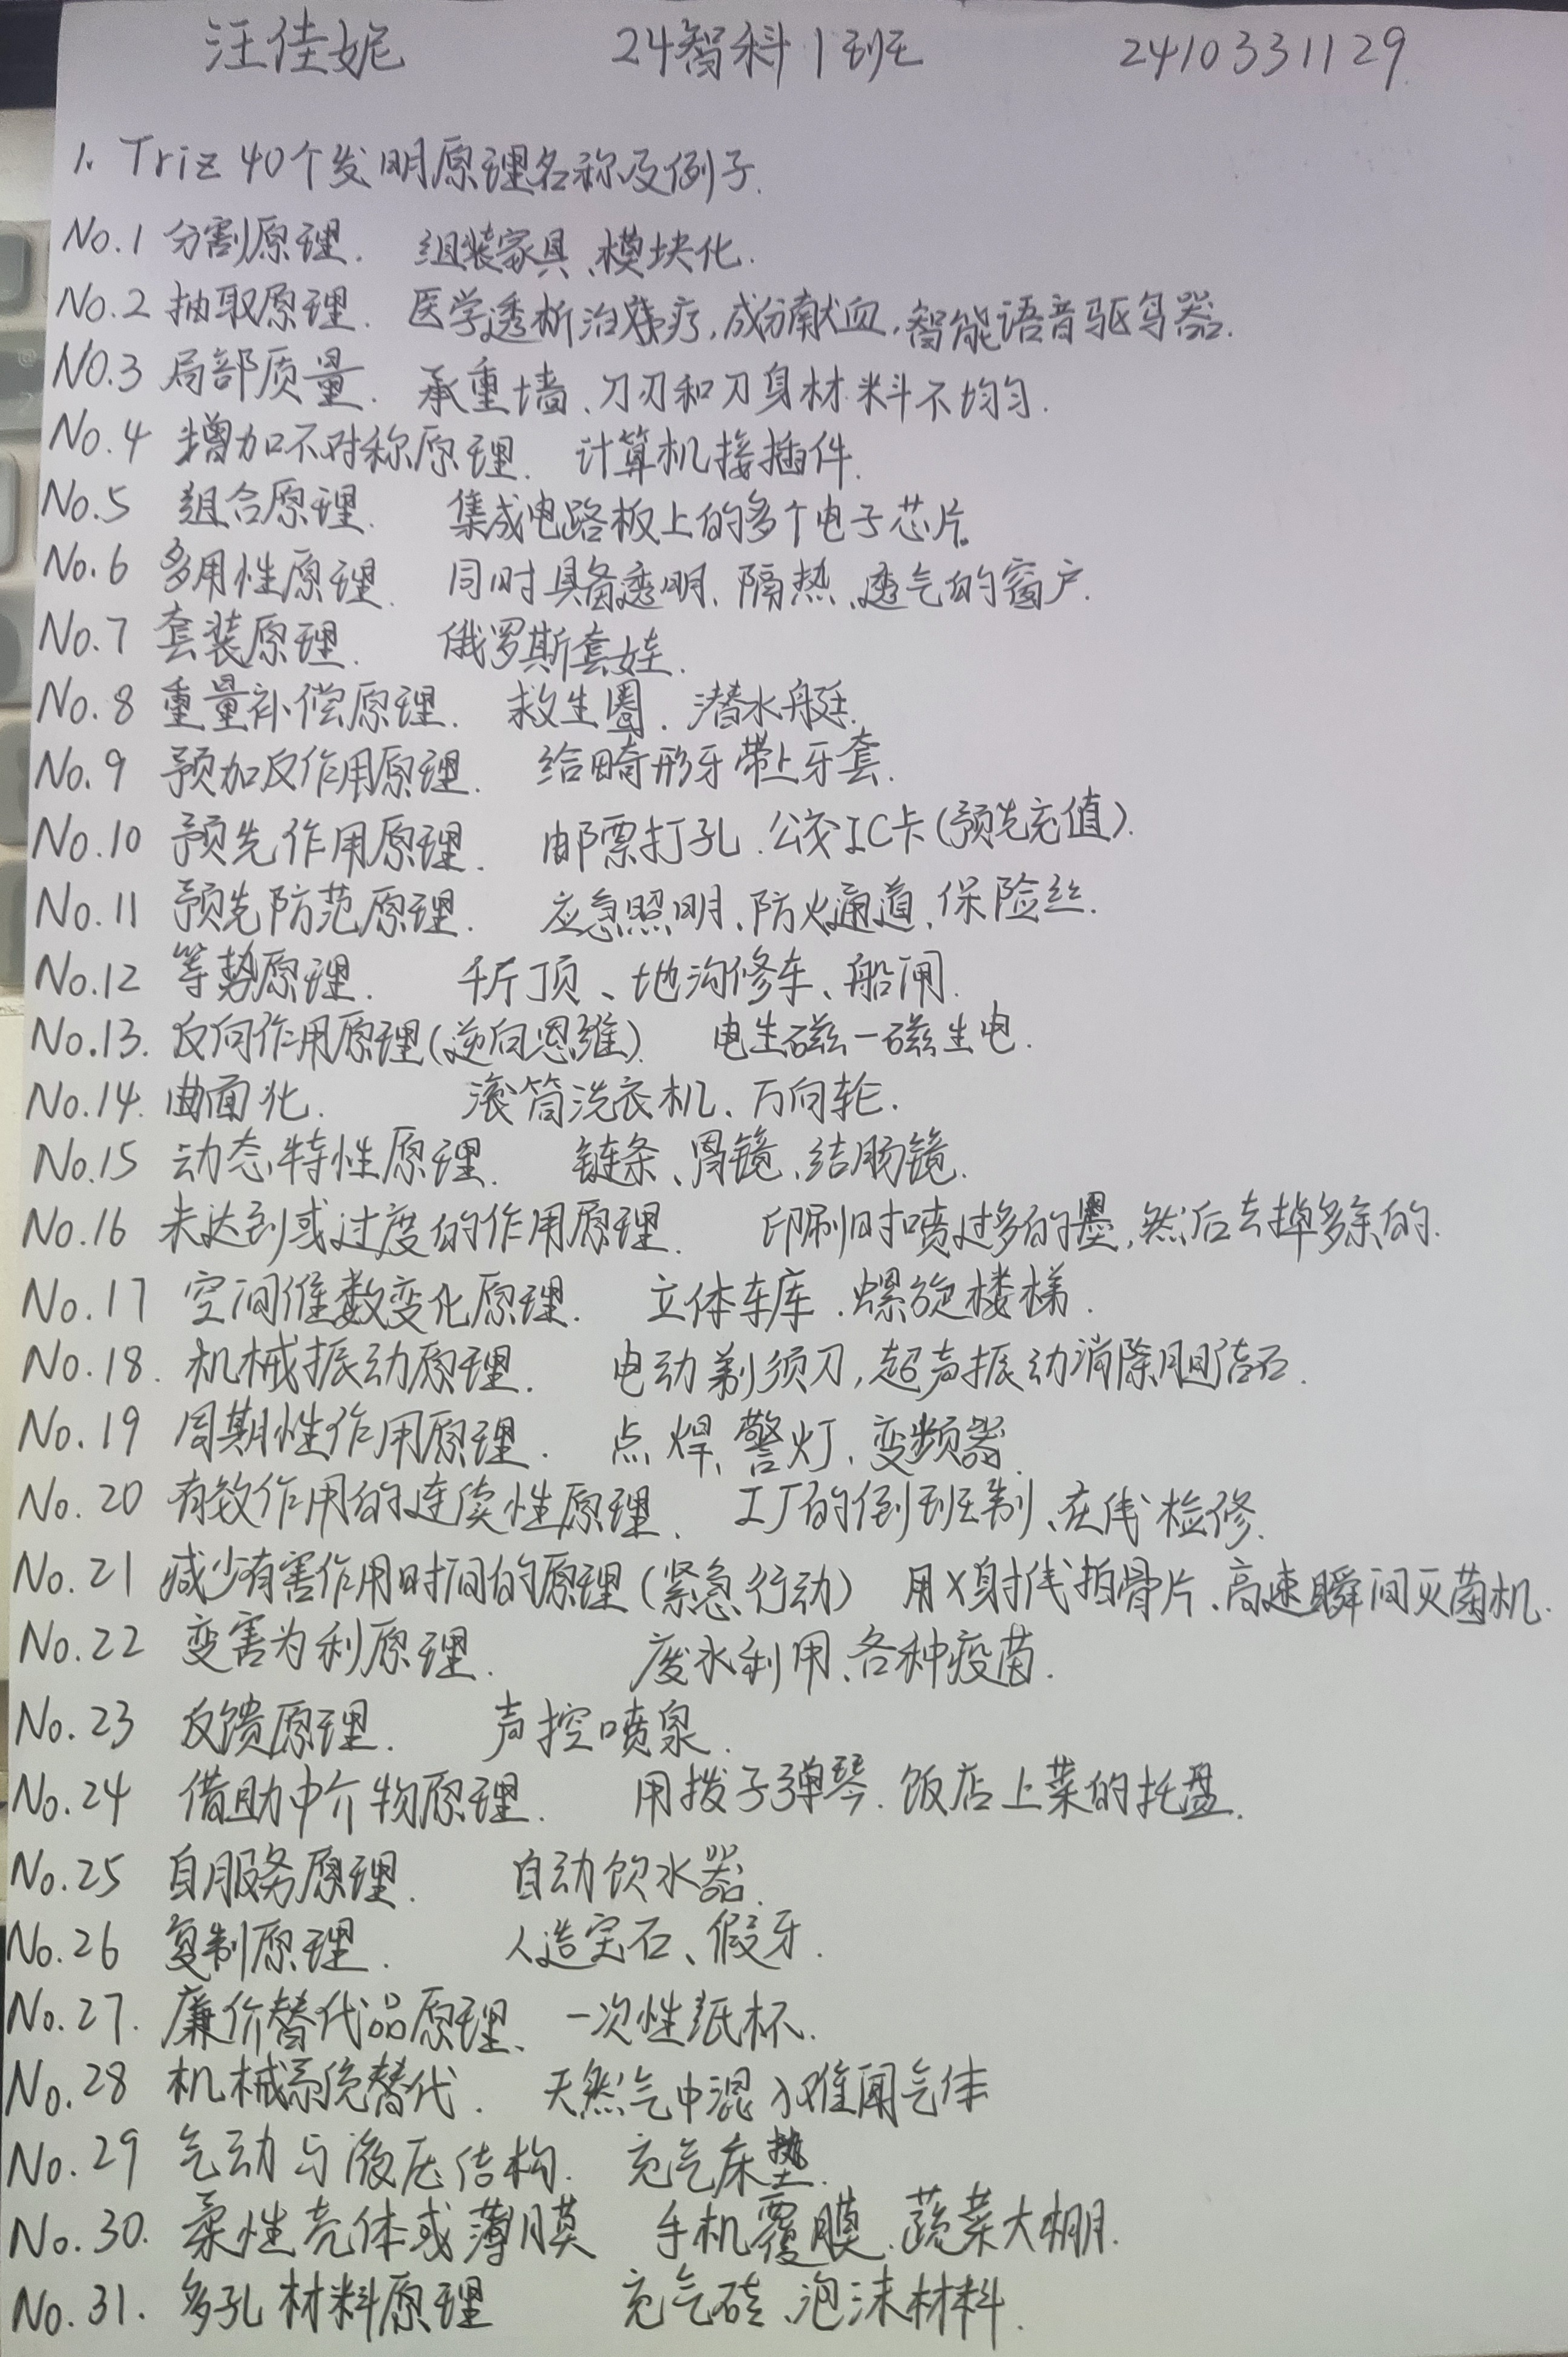 汪佳妮 24智科1班 2410331129
1. Triz 40个发明原理名称及例子.
No.1 分割原理. 组装家具、模块化.
No.2 抽取原理. 医学透析治疗,成分献血,智能语音驱鸟器.
No.3 局部质量. 承重墙、刀刃和刀身材料不均匀.
No.4 增加不对称原理. 计算机接插件.
No.5 组合原理. 集成电路板上的多个电子芯片。
No.6 多用性原理. 同时具备透明、隔热、透气的窗户.
No.7 套装原理. 俄罗斯套娃.
No.8 重量补偿原理. 救生圈、潜水艇.
No.9 预加反作用原理. 给畸形牙带上牙套.
No.10 预先作用原理. 邮票打孔、公交IC卡(预先充值).
No.11 预先防范原理. 应急照明、防火通道、保险丝.
No.12 等势原理. 千斤顶、地沟修车、船闸.
No.13. 反向作用原理(逆向思维). 电生磁—磁生电.
No.14. 曲面化. 滚筒洗衣机、万向轮.
No.15 动态特性原理. 链条、胃镜、结肠镜.
No.16 未达到或过度的作用原理. 印刷时喷过多的墨,然后去掉多余的.
No.17 空间维数变化原理. 立体车库、螺旋楼梯.
No.18. 机械振动原理. 电动剃须刀,超声振动消除胆结石.
No.19 周期性作用原理. 点焊、警灯、变频器.
No.20 有效作用的连续性原理. 工厂的倒班制、在线检修.
No.21 减少有害作用时间的原理(紧急行动) 用X射线拍骨片、高速瞬间灭菌机.
No.22 变害为利原理. 废水利用、各种疫苗.
No.23 反馈原理. 声控喷泉.
No.24 借助中介物原理. 用拨子弹琴、饭店上菜的托盘.
No.25 自服务原理. 自动饮水器.
No.26 复制原理. 人造宝石、假牙.
No.27. 廉价替代品原理、 一次性纸杯.
No.28 机械系统替代. 天然气中混入难闻气体
No.29 气动与液压结构. 充气床垫.
No.30. 柔性壳体或薄膜 手机覆膜、蔬菜大棚.
No.31. 多孔材料原理 充气砖、泡沫材料.